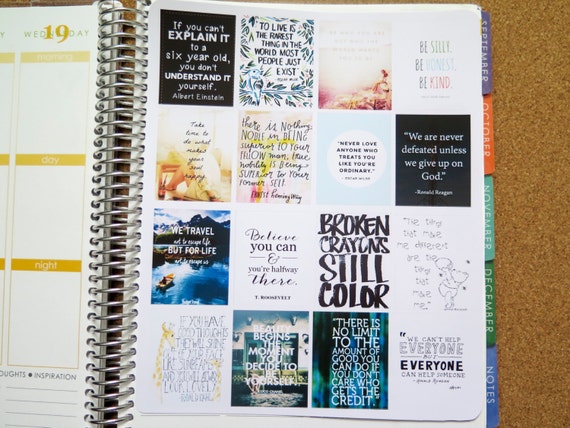 WEDNESDAY
19
morning
day
night
OUGHTS + INSPIRATION
If you can't
EXPLAIN IT
to a
six year old,
you don't
UNDERSTAND IT
yourself.
Albert Einstein
TO LIVE IS
THE RAREST
THING IN THE
WORLD MOST
PEOPLE JUST
EXIST
OSCAR WILDE
BE WHO YOU ARE
BE SILLY.
BE HONEST.
BE KIND.
Take
time to
do what
makes
your soul
happy
there is Nothing
NOBLE in BEING
superior TO YOUR
FELLOW MAN. true
nobility is BEING
SUPERIOR TO YOUR
FORMER SELF.
Ernest Hemingway
"NEVER LOVE
ANYONE WHO
TREATS YOU
LIKE YOU'RE
ORDINARY."
-OSCAR WILDE
"We are never
defeated unless
we give up on
God."
-Ronald Reagan
WE TRAVEL
not to escape life
BUT FOR LIFE
not to escape us
Believe
you can
&
you're halfway
there.
T. ROOSEVELT
BROKEN
CRAYONS
STILL
COLOR
The things
that make
me different
are the
things
that make
me
IF YOU HAVE
GOOD THOUGHTS
THEY WILL SHINE
OUT OF YOUR FACE
LIKE SUNBEAMS
AND YOU WILL ALWAYS
LOOK LOVELY
ROALD DAHL
BEAUTY
BEGINS
THE
MOMENT
YOU
DECIDE TO
BE
YOURSELF.
"THERE IS
NO LIMIT
TO THE
AMOUNT OF
GOOD YOU
CAN DO IF
YOU DON'T
CARE WHO
GETS THE
CREDIT."
"WE CAN'T HELP
EVERYONE
BUT
EVERYONE
CAN HELP SOMEONE"
-Ronald Reagan
SEPTEMBER
OCTOBER
NOVEMBER
DECEMBER
NOTES